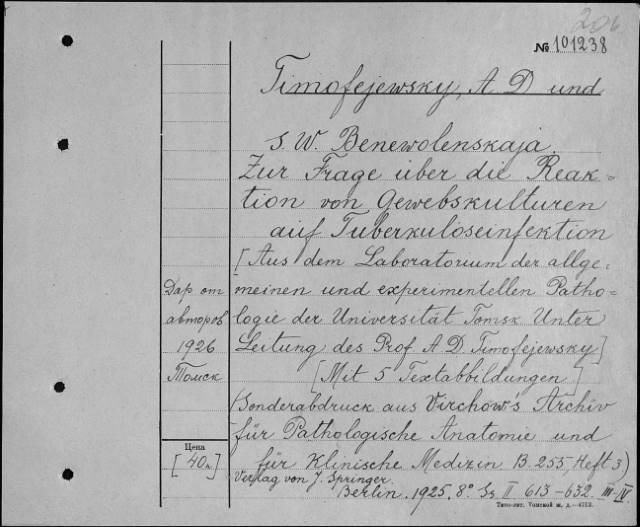 206
№ 101238
Timofejewsky, A D und
S. W. Benewolenskaja.
Zur Frage über die Reak-
tion von Gewebskulturen
auf Tuberkulöseinfektion
[Aus dem Laboratorium der allge-
meinen und experimentellen Patho-
logie der Universität Tomsk Unter
Leitung des Prof A. D. Timofejewsky]
[Mit 5 Textabbildungen]
(Sonderabdruck aus Virchow's Archiv
für Pathologische Anatomie und
für Klinische Medizin B. 255, Heft 3)
Verlag von J. Springer.
Berlin. 1925. 8° Ss II 613-632. III-IV
Дар от
авторов
1926
Томск
Цена
[40к]
Типо-лит. Томской ж. д.—4713.